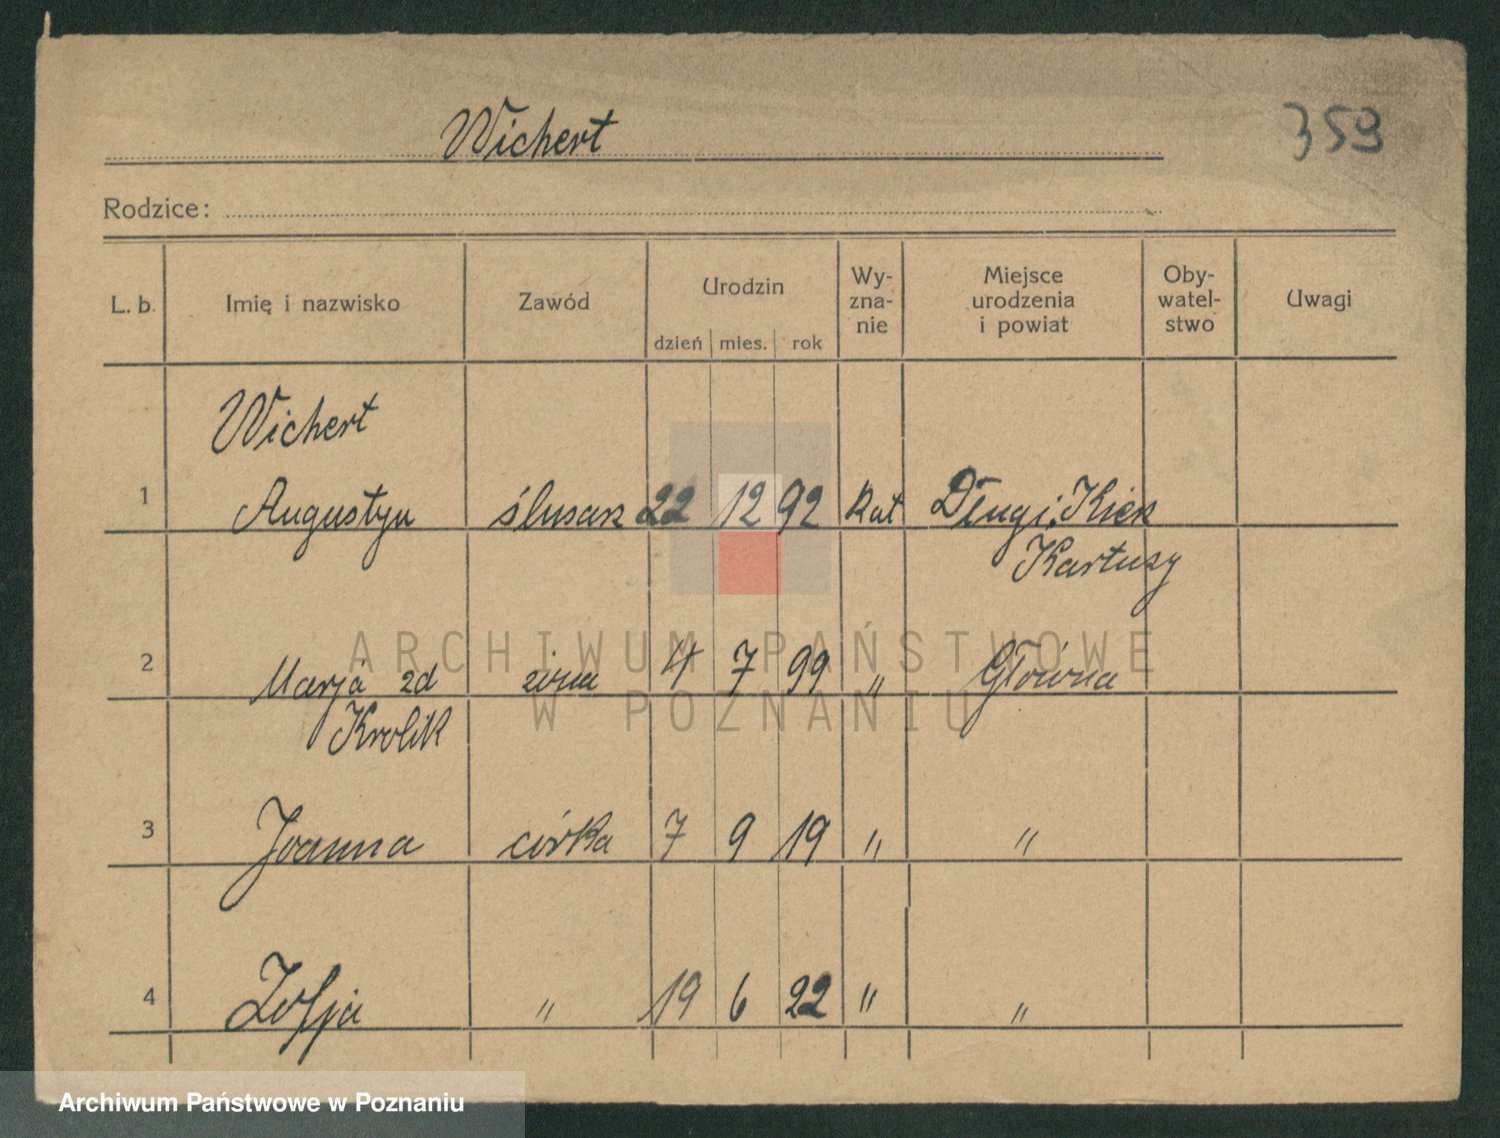 Wichert
359
Rodzice:
L. b. Imię i nazwisko Zawód Urodzin dzień mies. rok Wy-zna-nie Miejsce urodzenia i powiat Oby-watel-stwo Uwagi
Wichert
1 Augustyn ślusarz 22 12 92 kat Długi Kierz
Kartuzy
2 Marja zd żona 4 7 99 " Główna
Krolik
3 Joanna córka 7 9 19 " "
4 Zofja " 19 6 22 " "
ARCHIWUM PAŃSTWOWE
W POZNANIU
Archiwum Państwowe w Poznaniu